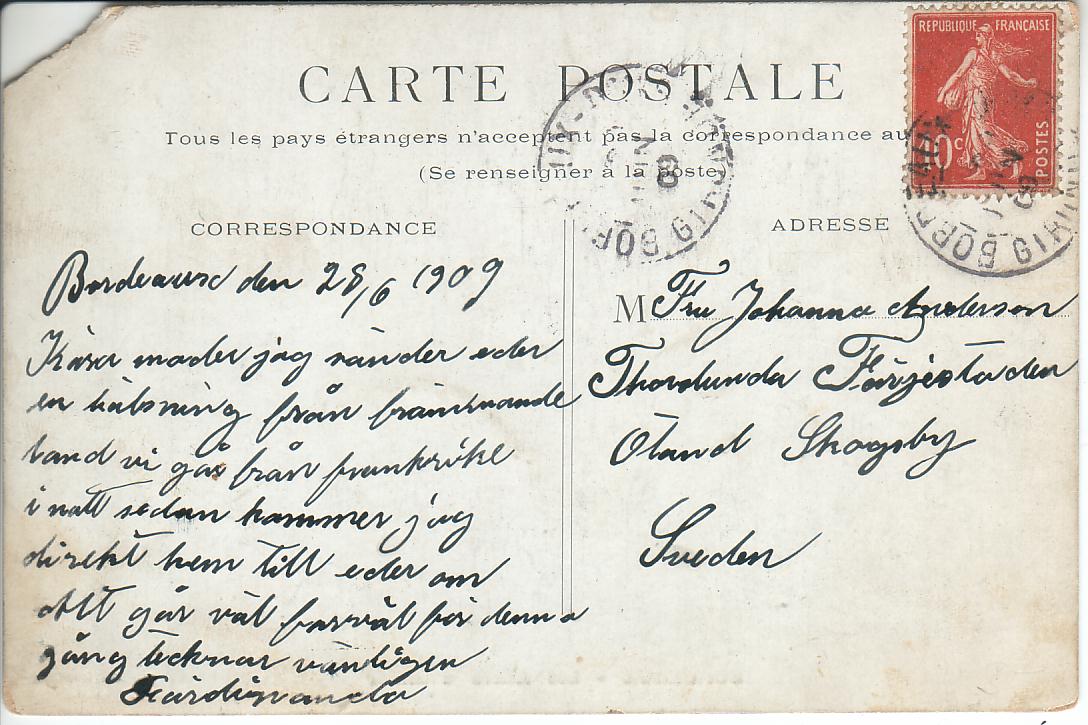 CARTE POSTALE
Tous les pays étrangers n'acceptent pas la correspondance au
(Se renseigner à la poste)
REPUBLIQUE FRANÇAISE
10c
POSTES
BORDEAUX
GIRONDE
CORRESPONDANCE
Bordeaux den 28/6 1909
Kära moder jag sänder eder
en hälsning från främmande
land vi går från frankrike
i natt sedan kommer jag
direkt hem till eder om
allt går väl farväl för denna
gång tecknar vänligen
ADRESSE
M Fru Johanna Anderson
Thorslunda Färjestaden
Öland Skogsby
Sveden